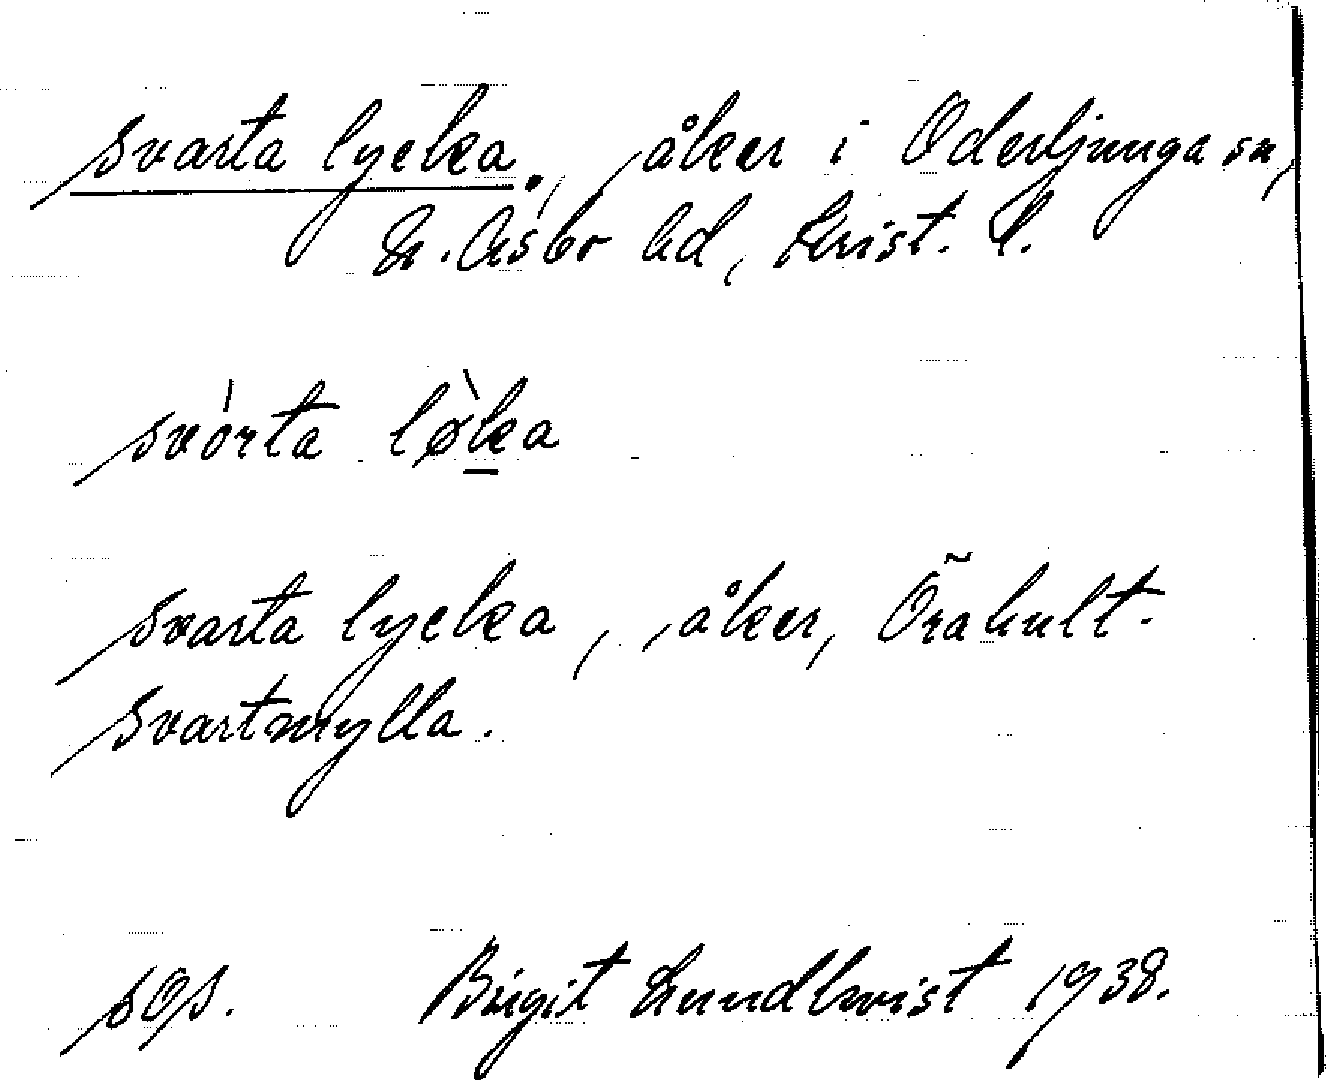 svarta lycka., åker i Oderljunga sn,
N. Åsbo hd, Krist. l.
svòrta lø̀ka
svarta lycka, åker, Õrahult.
Svartmylla.
sOs. Birgit Lundkvist 1938.